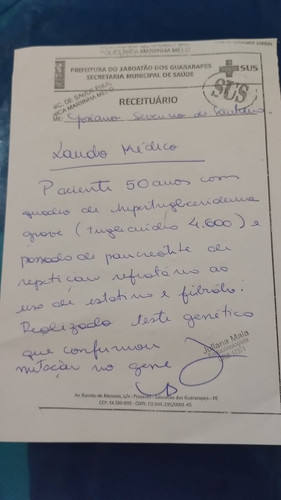 POLICLINICA MARINHA MELO
PREFEITURA DO JABOATÃO DOS GUARARAPES
SECRETARIA MUNICIPAL DE SAÚDE
SUS
SUS
MARINHA MELO
RECEITUÁRIO
Severino de Santana
Laudo Médico
Paciente 50 anos com
quadro de hipertrigliceridemia
grave (triglicerídeo 4.600) e
passado de pancreatite de
repetição refratário ao
uso de estatina e fibrato.
Realizado teste genético
que confirmou
mutação no gene
Juliana Maia
Jaboatão dos Guararapes - PE